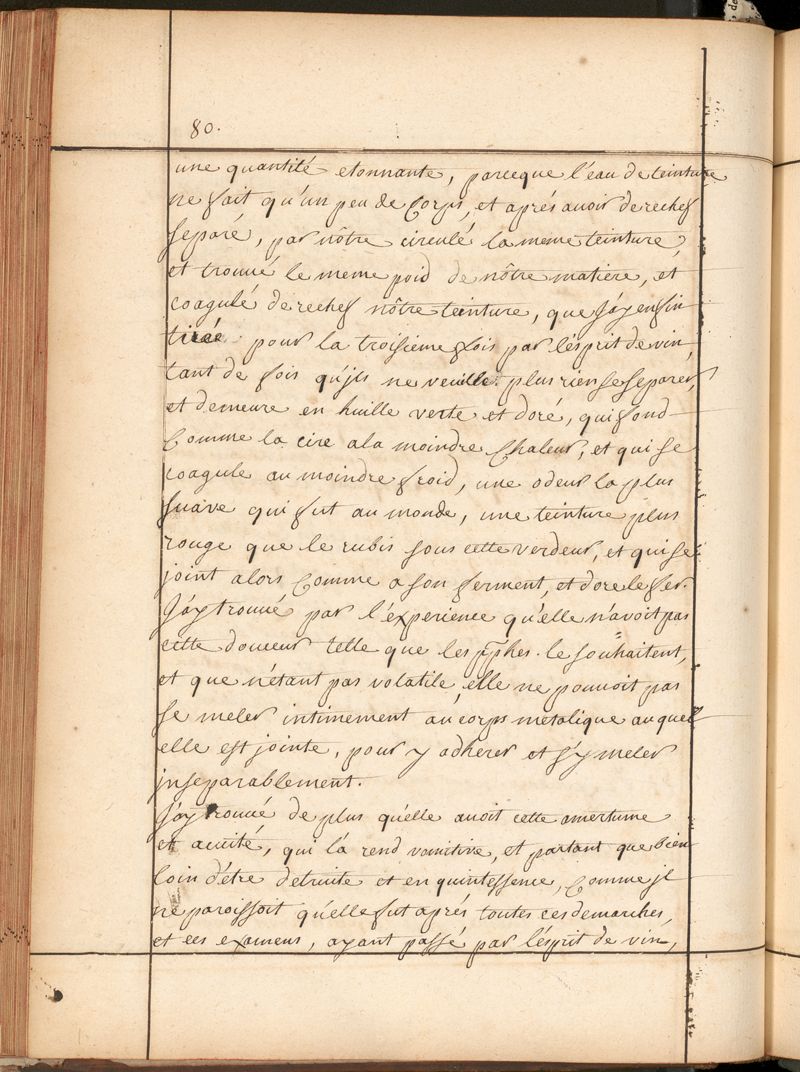 80.
une quantité etonnante, parceque l'eau de teinture
ne fait qu'un peu de Corps, et aprés auoir derechef
separé, par nôtre circulé la meme teinture,
et trouué le meme poid de nôtre matiere, et
coagulé derechef nôtre teinture, que j'ay enfin
tirée pour la troisieme fois par l'ésprit de vin
tant de fois qu'jls ne veuille plus rien se separer,
et demeure en huille verte et doré, qui fond
Comme la cire a la moindre Chaleur, et qui se
coagule au moindre froid, une odeur la plus
suave qui fut au monde, une teinture plus
rouge que le rubis sous cette verdeur, et qui se
joint alors Comme a son ferment, et dore le fer.
J'ay trouué par l'experience qu'elle n'avoit pas
cette douceur telle que les pphes. le souhaitent,
et que n'étant pas volatile, elle ne pouuoit pas
se meler intimement au corps metalique auquel
elle est jointe, pour y adherer et s'y meler
jnseparablement.
J'ay trouué de plus qu'elle auoit cette amertume
et acuité, qui la rend vomitive, et partant que bien
loin d'étre detruite et en quintessence, Comme jl
ne paroissoit qu'elle fut aprés toutes ces demarches,
et ces examens, ayant passé par l'ésprit de vin,